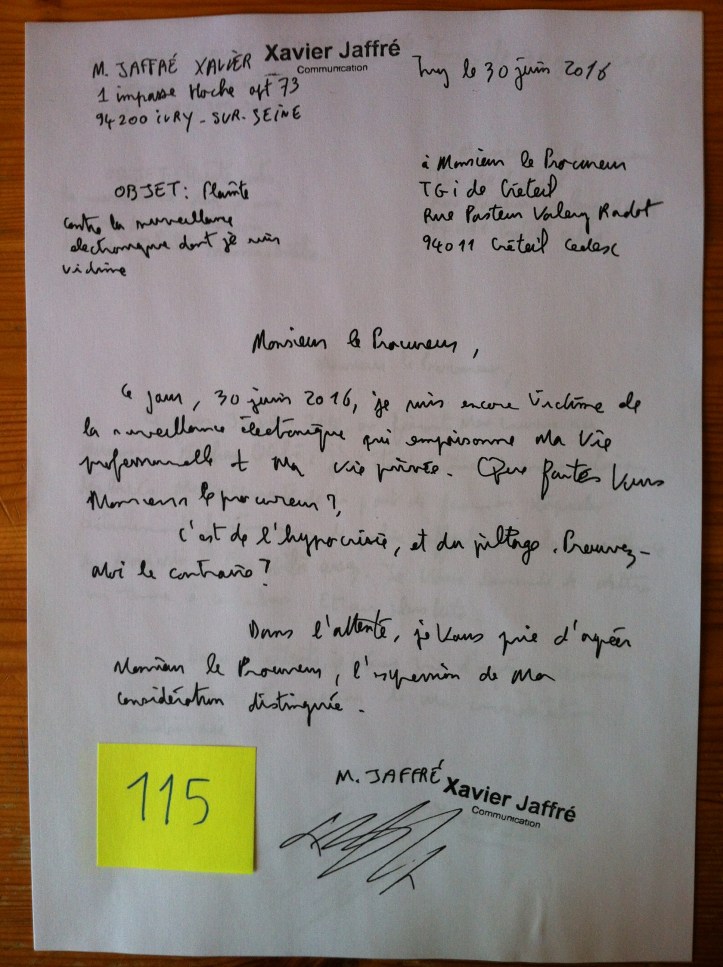 M. JAFFRÉ XAVIER Xavier Jaffré
Communication
Ivry le 30 juin 2016
1 impasse Hoche apt 73
94200 IVRY-SUR-SEINE
à Monsieur le Procureur
TGI de Créteil
Rue Pasteur Valery Radot
94011 Créteil Cedex
OBJET: Plainte
contre la surveillance
électronique dont je suis
victime
Monsieur le Procureur,
Ce jour, 30 juin 2016, je suis encore victime de
la surveillance électronique qui empoisonne ma vie
professionnelle et ma vie privée. Que faites vous
Monsieur le procureur?,
C'est de l'hypocrisie, et du . Prouvez-
moi le contraire?
Dans l'attente, je vous prie d'agréer
Monsieur le Procureur, l'expression de ma
considération distinguée.
115
M. JAFFRÉ Xavier Jaffré
Communication